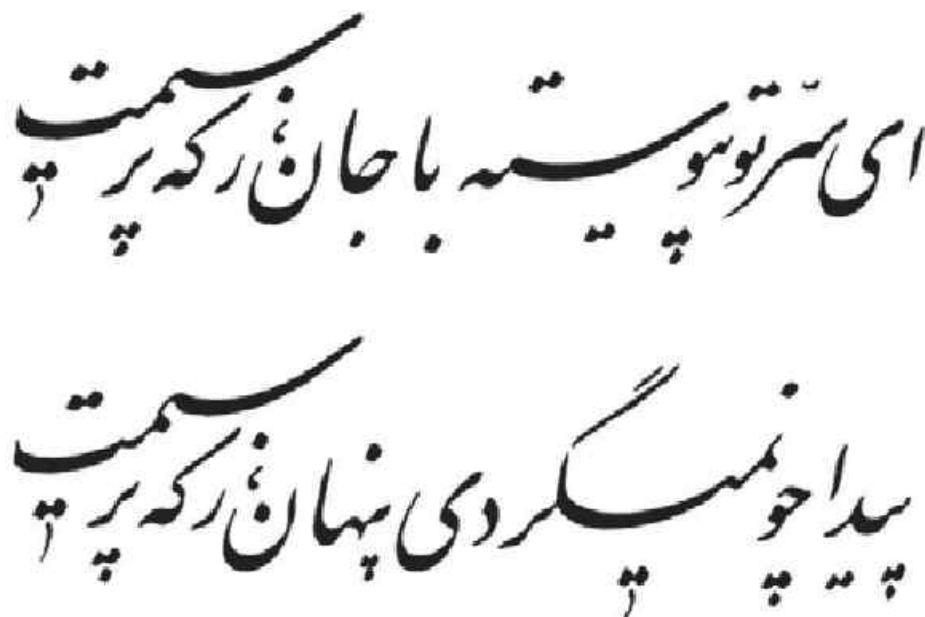 ای سرّ تو پیوسته با جان، ز که پرسیمت
پیدا چو نمیگردی پنهان، ز که پرسیمت